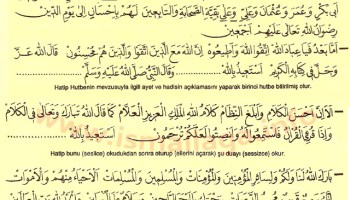 أَبِي بَكْرٍ وَعُمَرَ وَعُثْمَانَ وَعَلِيٍّ وَعَلَى بَقِيَّةِ الصَّحَابَةِ وَالتَّابِعِينَ لَهُمْ بِإِحْسَانٍ إِلَى يَوْمِ الدِّينِ
رِضْوَانُ اللهِ تَعَالَى عَلَيْهِمْ أَجْمَعِينَ
أَمَّا بَعْدُ فَيَا عِبَادَ اللهِ اِتَّقُوا اللهَ وَأَطِيعُوهُ إِنَّ اللهَ مَعَ الَّذِينَ اتَّقَوْا وَالَّذِينَ هُمْ مُحْسِنُونَ قَالَ اللهُ عَزَّ
وَجَلَّ فِي كِتَابِهِ الْكَرِيمِ أَسْتَعِيذُ بِاللهِ وَقَالَ النَّبِيُّ صَلَّى اللهُ عَلَيْهِ وَسَلَّمَ
Hatip Hutbenin mevzusuyla ilgili ayet ve hadisin açıklamasını yaparak birinci hutbe bitirilmiş olur.
أَلَا إِنَّ أَحْسَنَ الْكَلَامِ وَأَبْلَغَ النِّظَامِ كَلَامُ اللهِ الْمَلِكِ الْعَزِيزِ الْعَلَّامِ كَمَا قَالَ اللهُ تَبَارَكَ وَتَعَالَى فِي الْكَلَامِ
وَإِذَا قُرِئَ الْقُرْآنُ فَاسْتَمِعُوا لَهُ وَأَنْصِتُوا لَعَلَّكُمْ تُرْحَمُونَ أَسْتَعِيذُ بِاللهِ
Hatip bunu (seslice) okuduktan sonra oturup (ellerini açarak) şu duayı (sessizce) okur.
بَارَكَ اللهُ لَنَا وَلَكُمْ وَلِسَائِرِ الْمُؤْمِنِينَ وَالْمُؤْمِنَاتِ وَالْمُسْلِمِينَ وَالْمُسْلِمَاتِ الْأَحْيَاءِ مِنْهُمْ وَالْأَمْوَاتِ